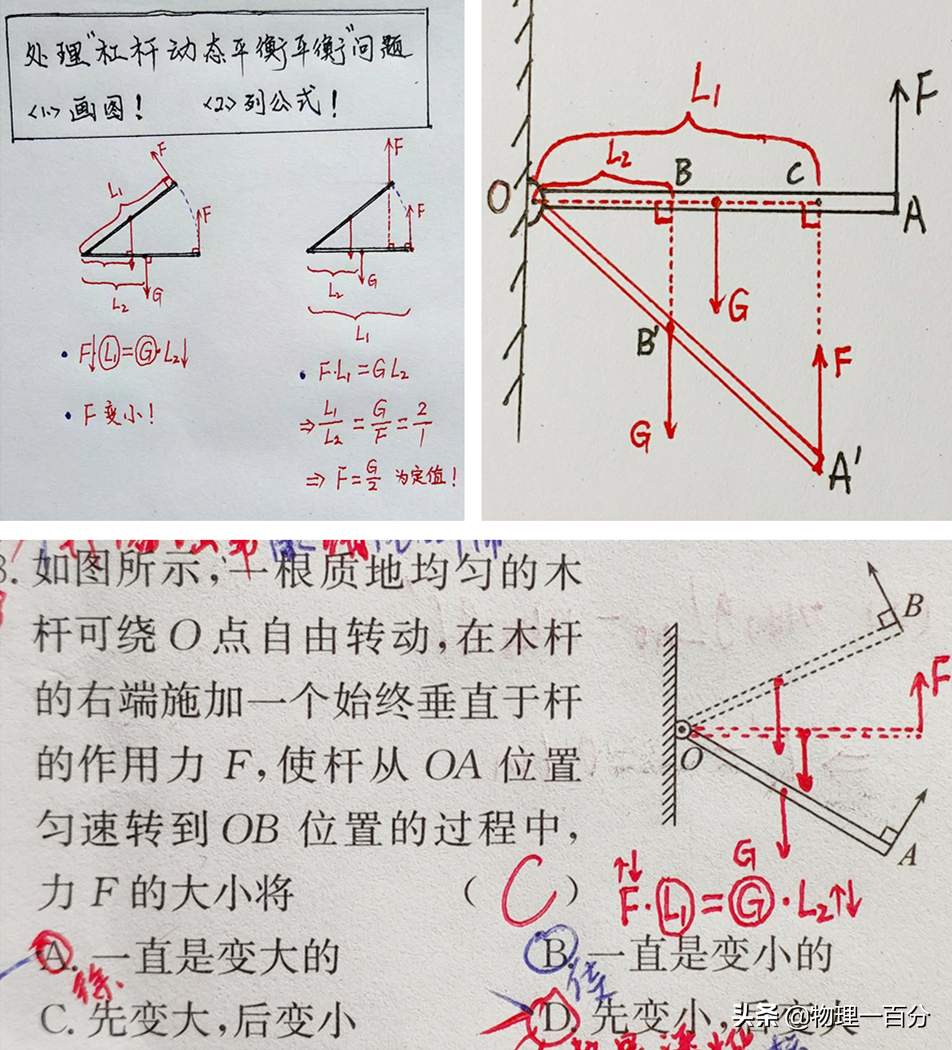 处理“杠杆动态平衡平衡”问题
<1>画图! <2>列公式!
F
L₁
F
L₂
G
F↓·L₁=G·L₂↓
F变小!
F
F
L₂
G
L₁
F·L₁=GL₂
⇒L₁/L₂=G/F=2/1
⇒F=G/2 为定值!
L₁
F
L₂
B
C
O
A
G
B'
F
G
A'
8.如图所示,一根质地均匀的木
杆可绕O点自由转动,在木杆
的右端施加一个始终垂直于杆
的作用力F,使杆从OA位置
匀速转到OB位置的过程中,
力F的大小将 (C)
A.一直是变大的
B.一直是变小的
C.先变大,后变小
D.先变小,后变大
B
F
O
A
G
↑↓
F·L₁=G·L₂↑↓
头条 @物理一百分